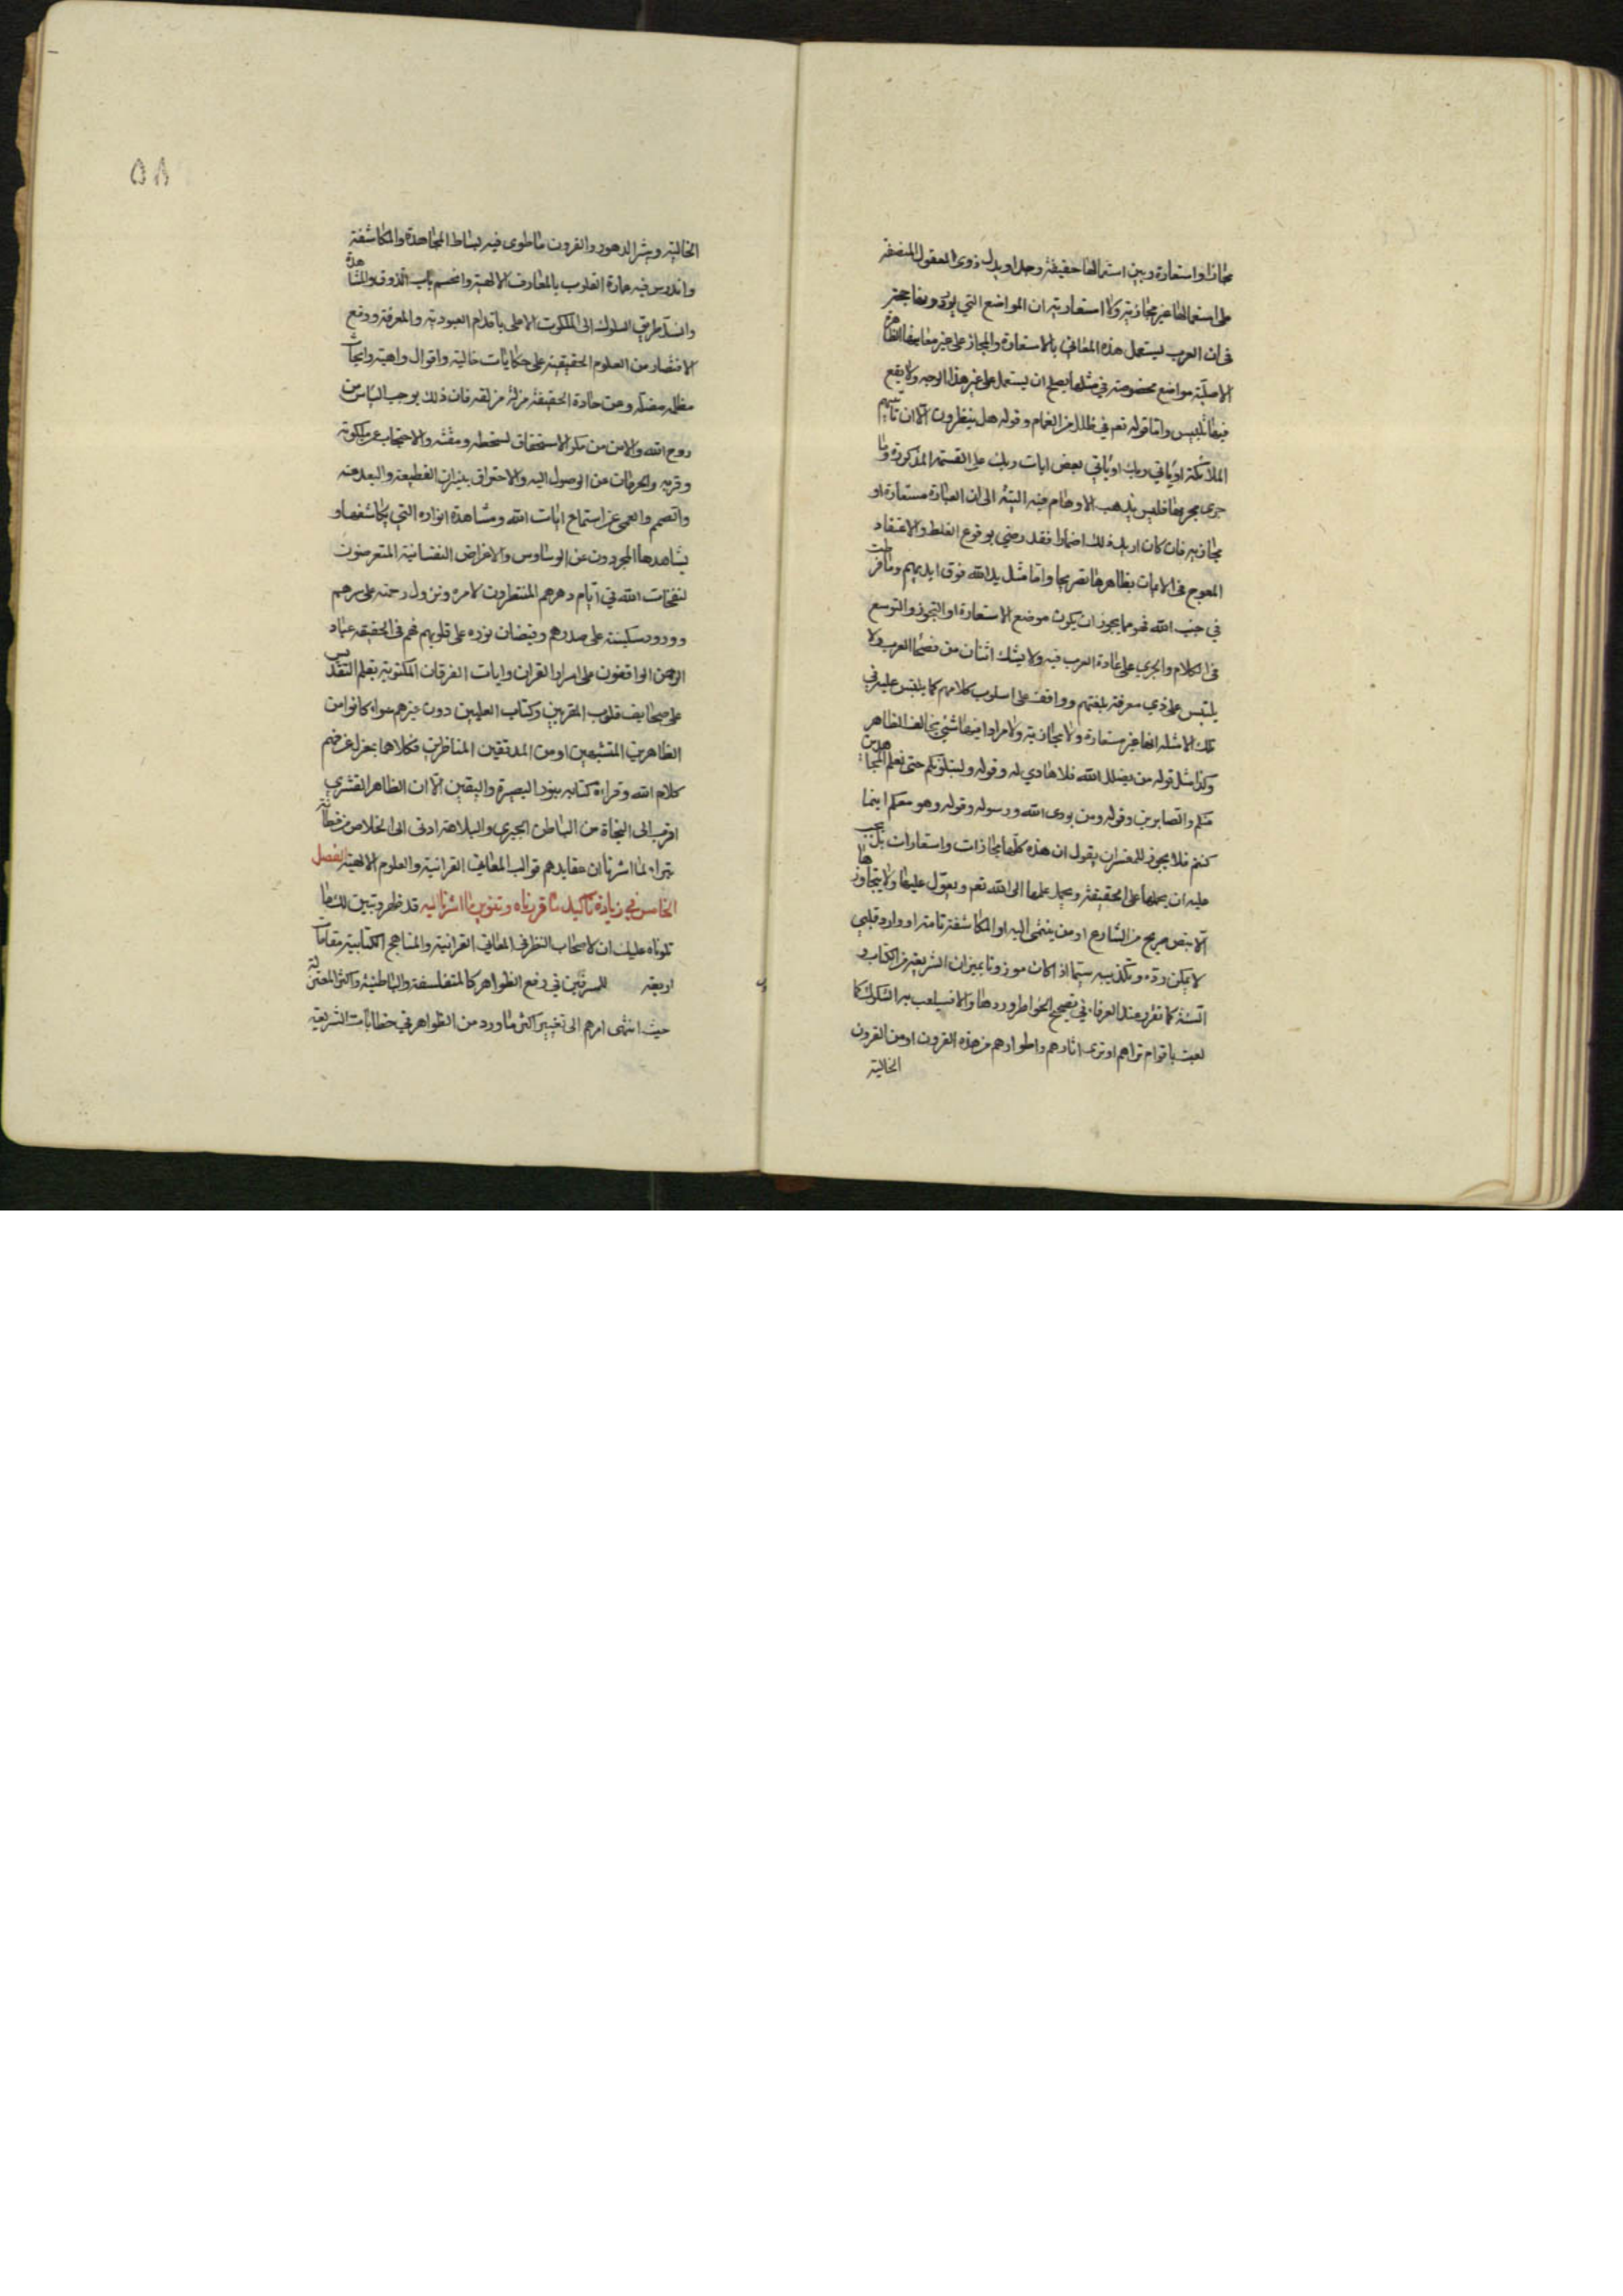 مجازا واستعارة وبين استعمالها حقيقة وجدا ويدل ذوى العقول المنصفة
على استعمالها غير مجازية ولا استعارية ان المواضع التي يوردونها حجة
فى ان العرب يستعمل هذه المعاني بالاستعارة والمجاز على غير معانيها الظاهرة
الاصلية مواضع مخصوصة في مثلها يصلح ان يستعمل على غير هذا الوجه ولا يقع
فيها تلبيس واما قوله تعم في ظلل من الغمام وقوله هل ينظرون الا ان تاتيهم
الملائكة او ياتي ربك او ياتي بعض ايات ربك على القسمة المذكورة وما
جرى مجريها فليس يذهب الاوهام فيه البتة الى ان العبارة مستعارة او
مجازية فان كان اريد ذلك اضمارا فقد رضي بوقوع الغلط والاعتقاد
المعوج فى الايات بظاهرها تصريحا واما مثل يد الله فوق ايديهم وما فرطت
في جنب الله فهو مما يجوز ان يكون موضع الاستعارة او التجوز والتوسع
فى الكلام والجري على عادة العرب فيه ولا يشك اثنان من فصحا العرب ولا
يلتبس على ذي معرفة بلغتهم وواقف على اسلوب كلامهم كما يلتبس عليه في
تلك الامثلة انها غير مستعارة ولا مجازية ولا مرادا فيها شئ يخالف الظاهر
وكذا مثل قوله من يضلل الله فلا هادي له وقوله ولنبلونكم حتى نعلم المجاهدين
منكم والصابرين وقوله ومن يودى الله ورسوله وقوله وهو معكم اينما
كنتم فلا يجوز للمفسر ان يقول ان هذه كلها مجازات واستعارات بل يجب
عليه ان يحملها على الحقيقة ويحيل علمها الى الله تعم ويعول عليها ولا يتجاوزها
الا بنص صريح من الشارع او من ينتمى اليه او المكاشفة تامة او وارد قلبي
لا يمكن رده وتكذيبه سيما اذا كان موزونا بميزان الشريعة من الكتاب و
السنة كما تقرر عند العرفاء في تصحيح الخواطر ووردها والا فسيلعب به الشكوك كما
لعبت باقوام تراهم او ترى اثارهم واطوارهم من هذه القرون او من القرون
الخالية
٥٨
الخالية وشر الدهور والقرون ما طوى فيه بساط المجاهدة والمكاشفة
واندرس فيه عمارة القلوب بالمعارف الالهية وانحسم باب الذوق والمشاهدة
وانسد طريق السلوك الى الملكوت الاعلى باقدام العبودية والمعرفة ووقع
الاقتصار من العلوم الحقيقية على حكايات خالية واقوال واهية وابحاث
مظلمة مضلة وعن جادة الحقيقة مزلة مزلقة فان ذلك يوجب الياس من
روح الله والامن من مكر الاستحقاق لسخطه ومقته والاحتجاب عن ملكوته
وقربه والحرمان عن الوصول اليه والاحتراق بنيران القطيعة والبعد عنه
والصمم والعمى عن استماع ايات الله ومشاهدة انواره التي يكاشفها و
يشاهدها المجردون عن الوساوس والاغراض النفسانية المتعرضون
لنفحات الله في ايام دهرهم المنتظرون لامره ونزول رحمته على سرهم
وورود سكينته على صدرهم وفيضان نوره على قلوبهم فهم فى الحقيقة عباد
الرحمن الواقفون على اسرار القران وايات الفرقان المكتوبة بقلم التقديس
على صحايف قلوب المقربين وكتاب العليين دون غيرهم سواء كانوا من
الظاهرين المتشبهين او من المدققين المناظرين فكلاهما بمعزل عن فهم
كلام الله وقراءة كتابه بنور البصيرة واليقين الا ان الظاهر القشري
اقرب الى النجاة من الباطن الجبري والبلاهة ادنى الى الخلاص من فطانة
بتراء لما اشرنا ان عقايدهم قوالب المعاني القرانية والعلوم الالهية الفصل
الخامس في زيادة تاكيد لما قررناه وتنوير ما اشرنا اليه قد ظهر وتبين لك مما
تلوناه عليك ان لاصحاب النظر فى المعاني القرانية والمناهج الكتابية مقامات
اربعة للمسرفين في رفع الظواهر كالمتفلسفة والباطنية واكثر المعتزلة
حيث انتهى امرهم الى تغيير اكثر ما ورد من الظواهر في خطابات الشريعة